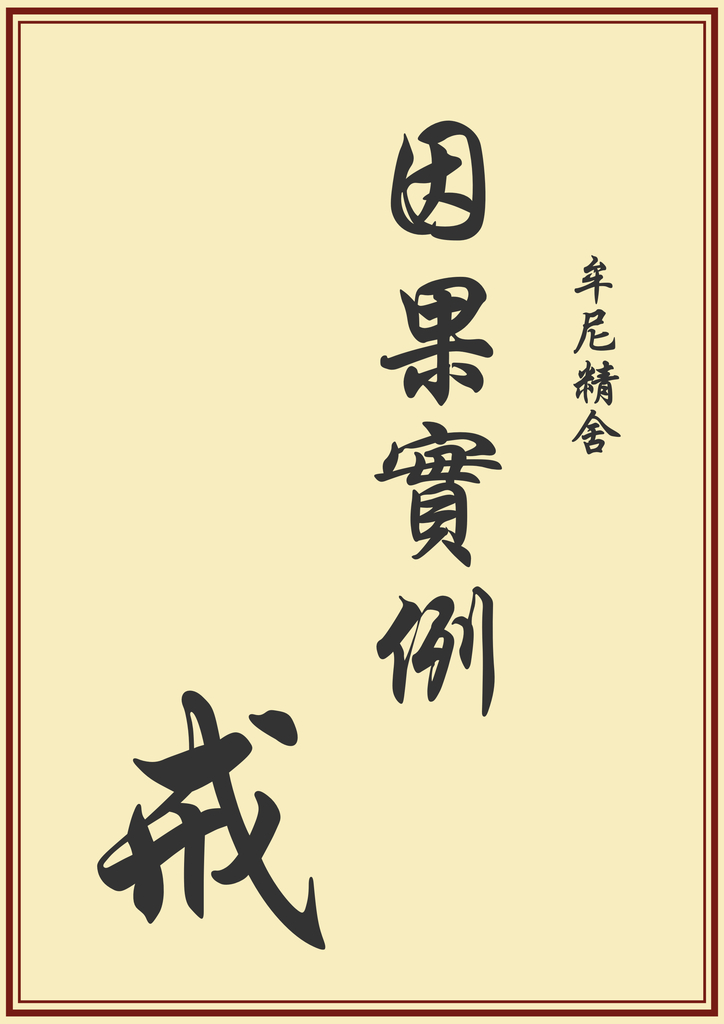 牟尼精舍
因果實例
戒